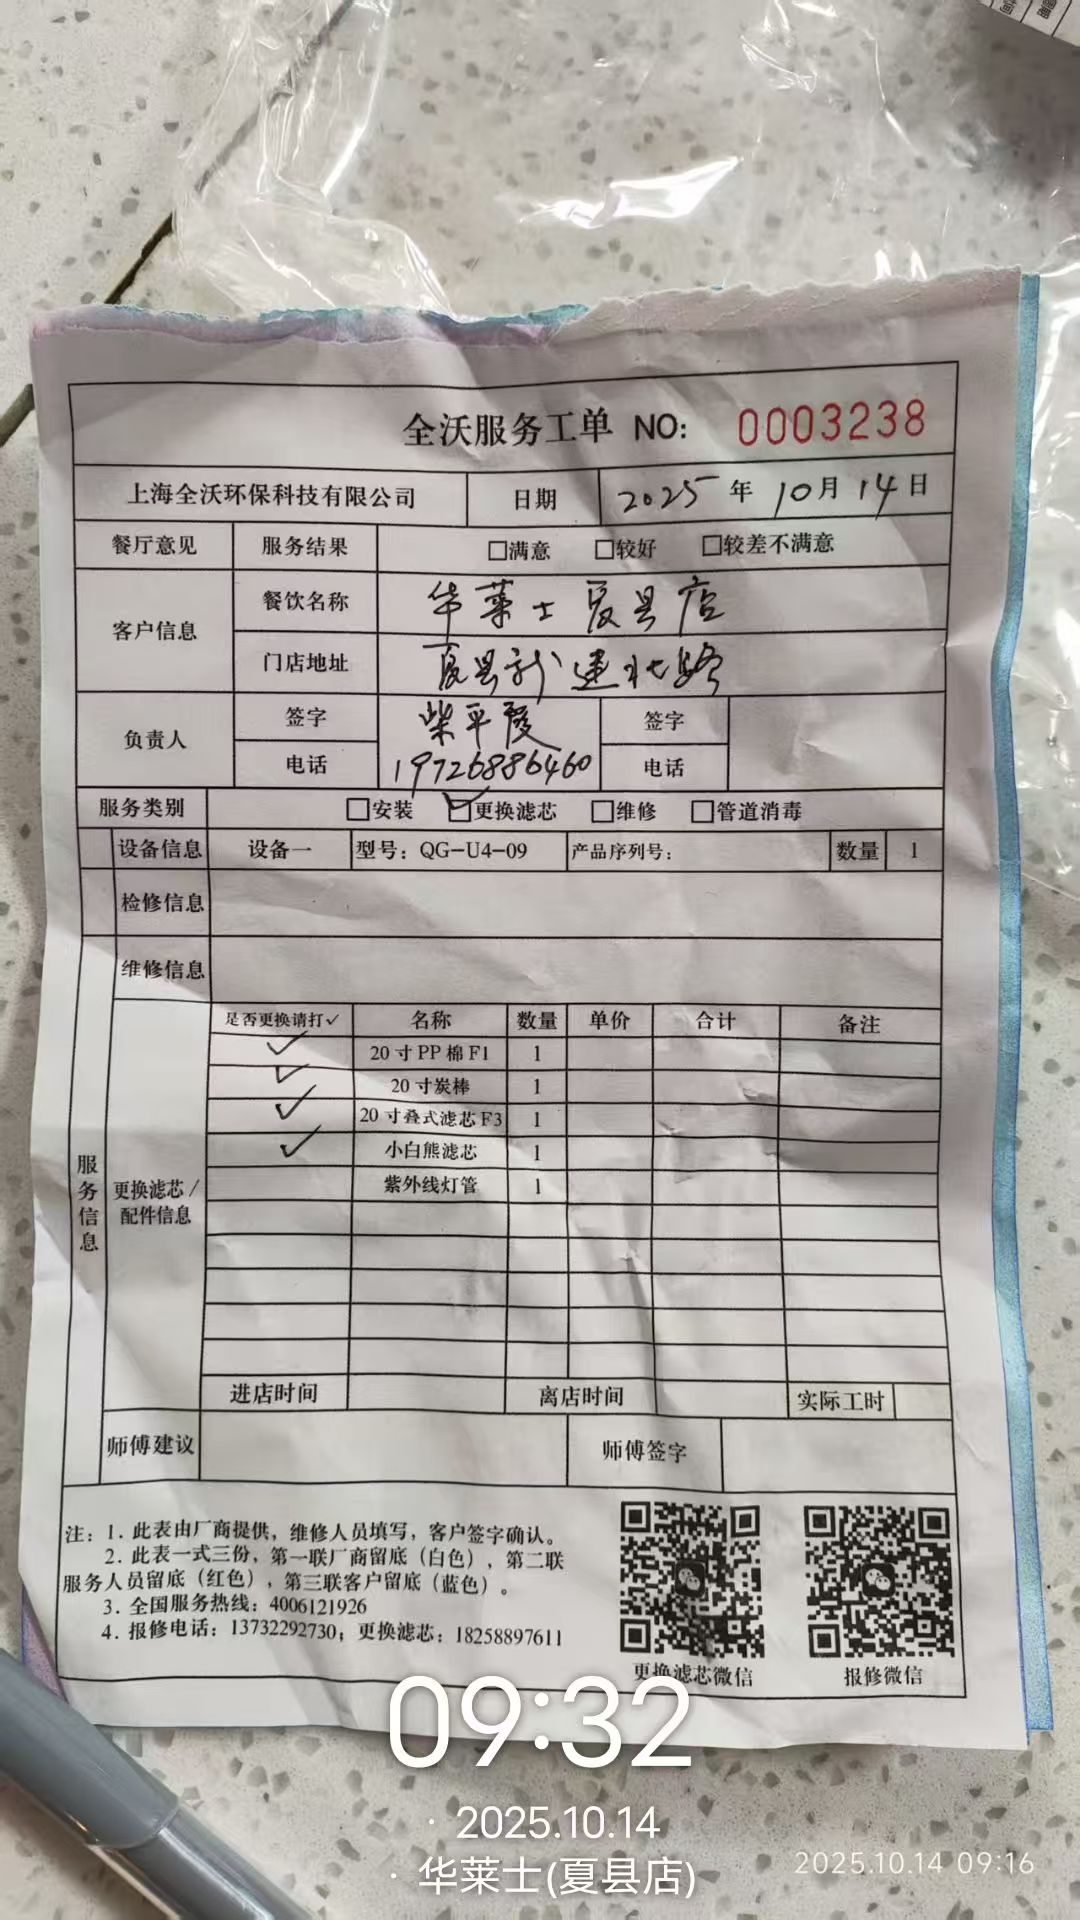 全沃服务工单 NO: 0003238
上海全沃环保科技有限公司 日期 2025年10月14日
餐厅意见 服务结果 □满意 □较好 □较差不满意
客户信息 餐饮名称 华莱士夏县店
门店地址 夏县新建北路
负责人 签字 柴平霞 签字
电话 19726886460 电话
服务类别 □安装 ☑更换滤芯 □维修 □管道消毒
设备信息 设备一 型号：QG-U4-09 产品序列号： 数量 1
检修信息
维修信息
服务信息
更换滤芯/配件信息
是否更换请打✓ 名称 数量 单价 合计 备注
✓ 20寸PP棉F1 1
✓ 20寸炭棒 1
✓ 20寸叠式滤芯F3 1
✓ 小白熊滤芯 1
紫外线灯管 1
进店时间 离店时间 实际工时
师傅建议 师傅签字
注：1. 此表由厂商提供，维修人员填写，客户签字确认。
2. 此表一式三份，第一联厂商留底（白色），第二联
服务人员留底（红色），第三联客户留底（蓝色）。
3. 全国服务热线：4006121926
4. 报修电话：13732292730；更换滤芯：18258897611
更换滤芯微信 报修微信
09:32
· 2025.10.14
· 华莱士(夏县店)
2025.10.14 09:16